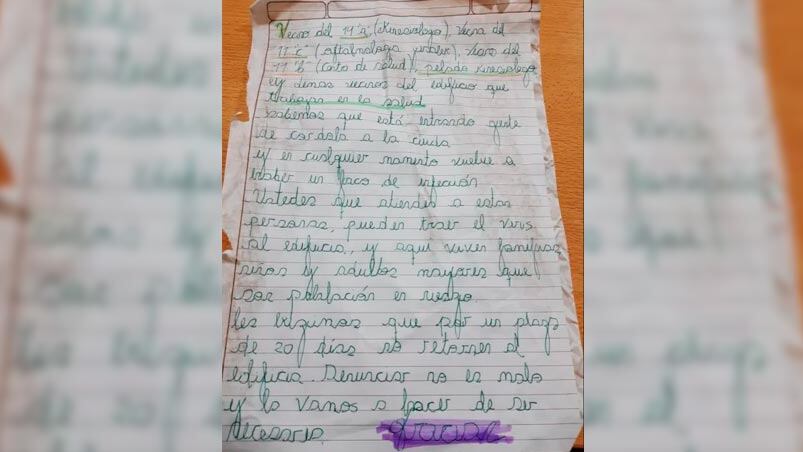 Vecino del 11 "a" (kinesiologo), vecina del
11 "c" (oftalmologa                  ), vecino del
11 "b" (corto de salud), pelado kinesiologo
y demas vecinos del edificio que
trabajan en la salud
sabemos que está entrando gente
de cordoba a la
y en cualquier momento vuelve a
haber un foco de infección
Ustedes que atienden a estas
personas, pueden traer el virus
al edificio, y aquí viven familias,
niños y adultos mayores que
son población en riesgo.
les exigimos que por un plazo
de 20 días no retornen al
edificio. Denunciar no es malo
y lo vamos a hacer de ser
necesario. gracias